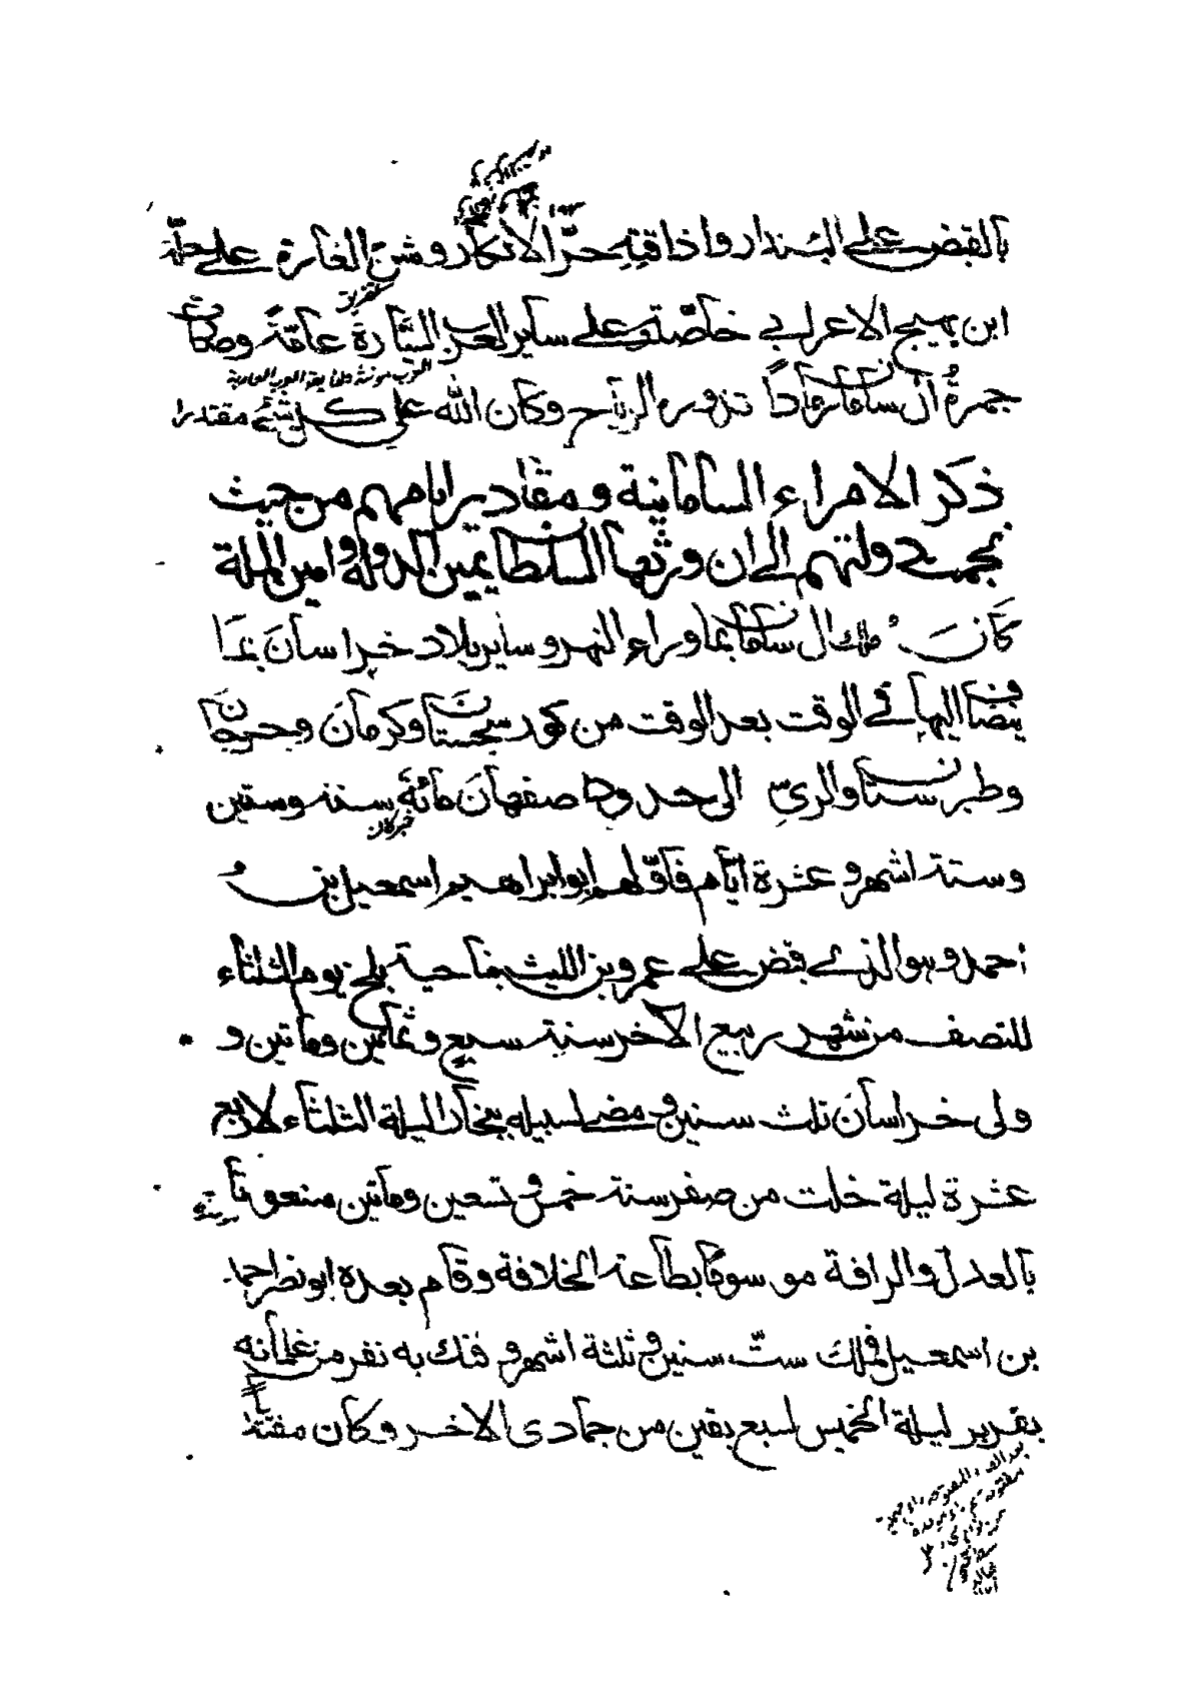 بالقبض على البندار واذاقته حرّ الانكار وشنّ الغارة على حلّة
ابن بهيج الاعرابي خاصّة وعلى ساير العرب الشّارة عامّةً وصارت
جمرةُ ال سامان رمادًا تذروه الرياح وكان الله على كل شئ مقتدرا
ذكر الامراء السامانية ومقادير ايامهم من حيث
نجمت دولتهم الى ان ورثها السلطان يمين الدولة وامين الملة
كانَ مُلك ال سامان بما وراء النهر وساير بلاد خراسانَ بما
ينضاف اليها في الوقت بعد الوقت من كور سجستان وكرمانَ وجرجان
وطبرستان والريّ الى حدود اصفهانَ مائةَ سنة وسنتين
وستة اشهر وعشرة ايّام فاوّلهم ابو ابراهيم اسمعيل بن
احمد وهو الذي قبض على عمرو بن الليث بناحية بلخ يوم الثلثاء
للنصف من شهر ربيع الاخر سنة سبع وثمانين ومأتين و
ولى خراسانَ ثلث سنين ومضى لسبيله ببخارا ليلة الثلثاء لاربع
عشرة ليلة خلت من صفر سنة خمس وتسعين ومأتين منعوتاً
بالعدل والرافة موسومًا بطاعة الخلافة وقام بعده ابو نصر احمد
بن اسمعيل فملك ستّ سنين وثلثة اشهر وفتك به نفر من غلمانه
بفربر ليلة الخميس لسبع بقين من جمادى الاخر وكان مفتتنا